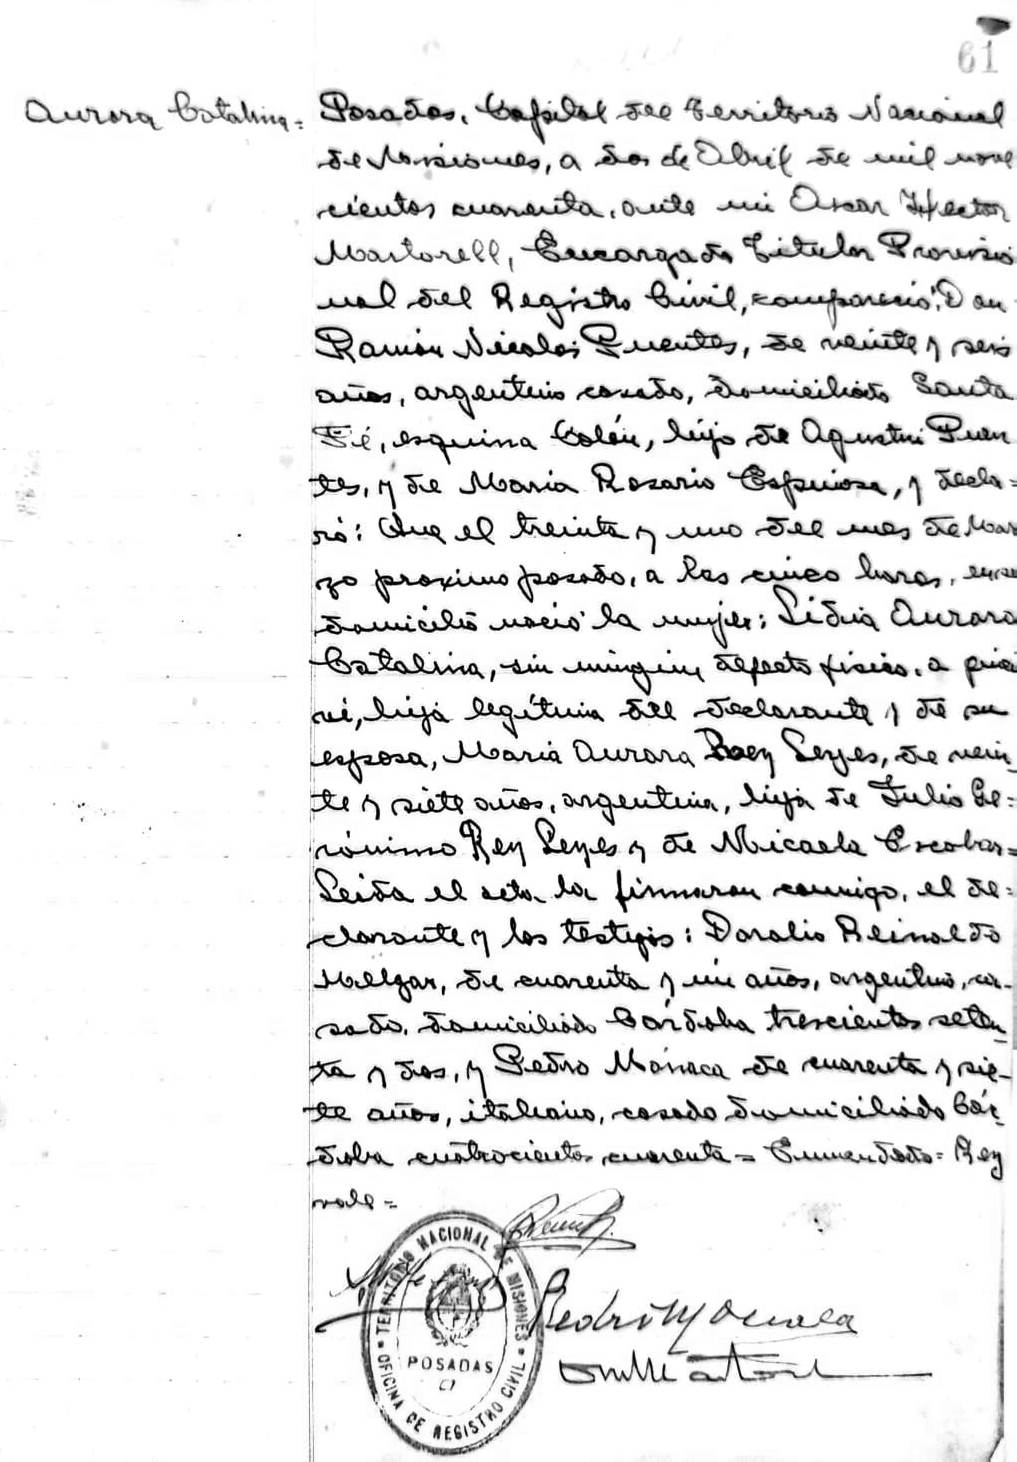 61
Aurora Catalina=
Posadas, Capital del Territorio Nacional
de Misiones, a dos de Abril de mil nove
cientos cuarenta, ante mi Oscar Hector
Martorell, Encargado Titular Provisio
nal del Registro Civil, compareció: Don
Ramón Nicolas Puentes, de veinte y seis
años, argentino casado, domiciliado Santa
Fé, esquina Colón, hijo de Agustin Puen
tes, y de Maria Rosario Espinosa, y decla=
ró: Que el treinta y uno del mes de Mar
zo proximo pasado, a las cinco horas, en su
domicilio nació la mujer: Lidia Aurora
Catalina, sin ningun defecto fisico, a quien
vi, hija legítima del declarante y de su
esposa, Maria Aurora Rey Leyes, de vein_
te y siete años, argentina, hija de Julio Ge=
rónimo Rey Leyes y de Micaela Escobar=
Leida el acta la firmaron conmigo, el de=
clarante y los testigos: Doralio Reinaldo
Melgar, de cuarenta y un años, argentino, ca-
sado, domiciliado Córdoba trescientos seten_
ta y dos, y Pedro Mónaca de cuarenta y sie_
te años, italiano, casado domiciliado Cór_
doba cuatrocientos cuarenta= Enmendado= Rey
vale=
TERRITORIO NACIONAL DE MISIONES
POSADAS
OFICINA DE REGISTRO CIVIL
Pedro Monaca